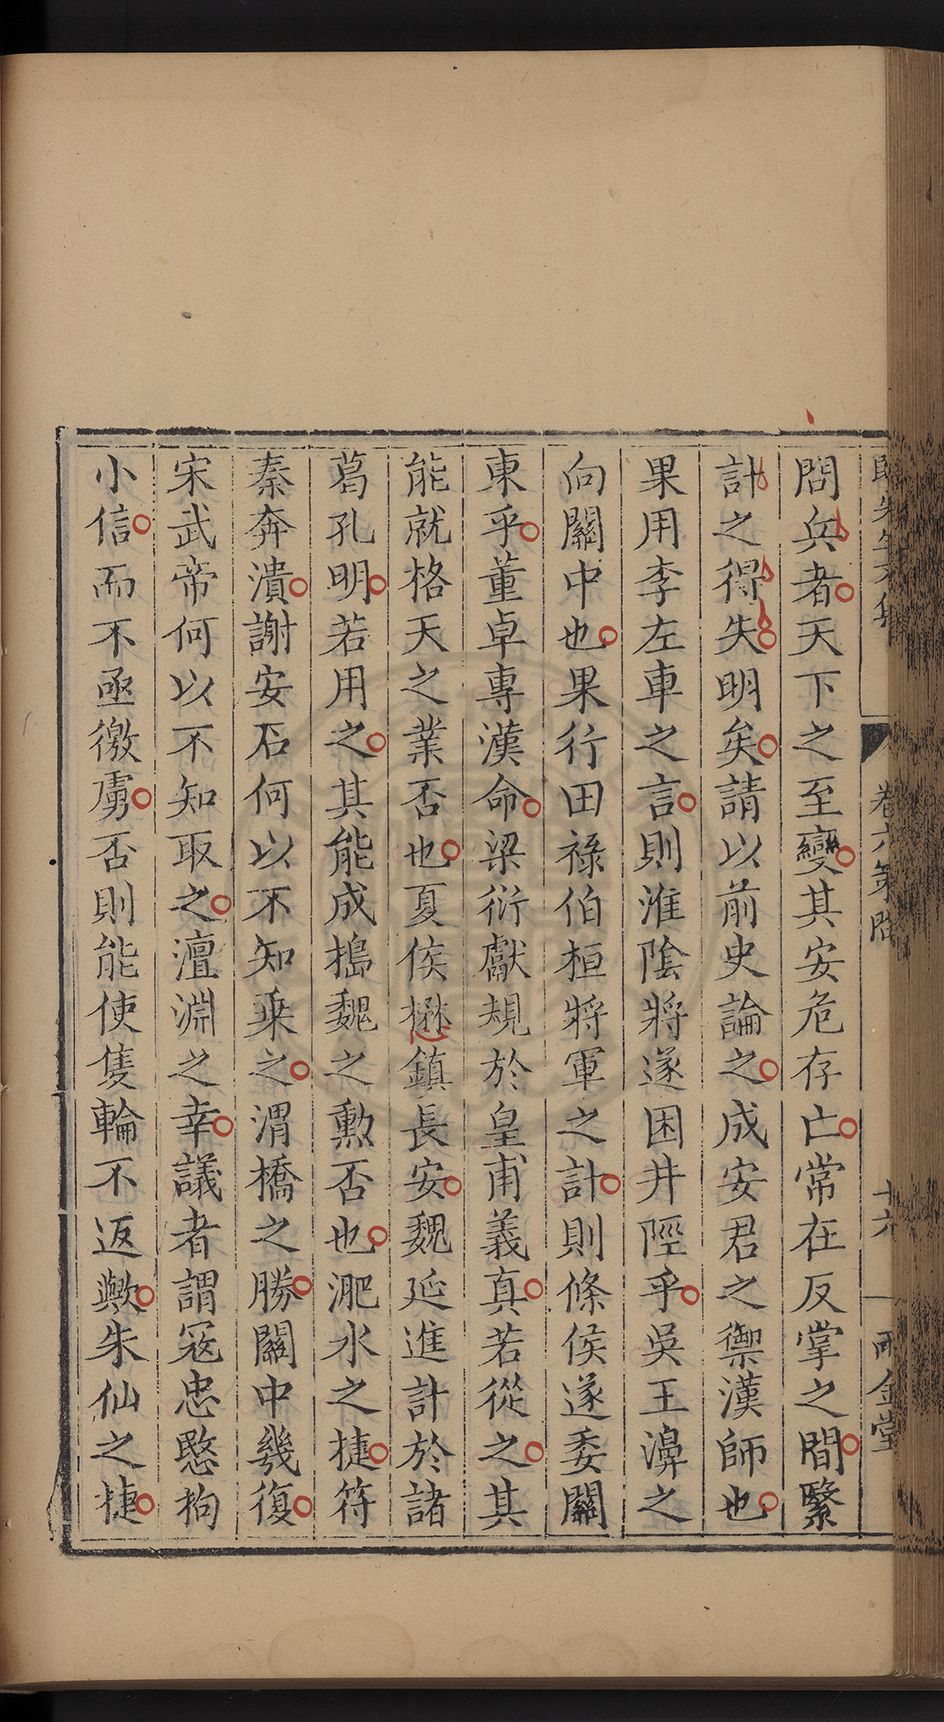 問兵者天下之至變其安危存亡常在反掌之間繄
計之得失明矣請以前史論之成安君之禦漢師也
果用李左車之言則淮陰將遂困井陘乎吳王濞之
向關中也果行田祿伯桓將軍之計則條侯遂委關
東乎董卓專漢命梁衍獻規於皇甫義真若從之其
能就格天之業否也夏侯楙鎮長安魏延進計於諸
葛孔明若用之其能成搗魏之勲否也淝水之捷苻
秦奔潰謝安石何以不知乗之渭橋之勝關中幾復
宋武帝何以不知取之澶淵之幸議者謂寇忠愍拘
小信而不亟徼虜否則能使隻輪不返歟朱仙之捷
卷六策問
十六
耐金堂